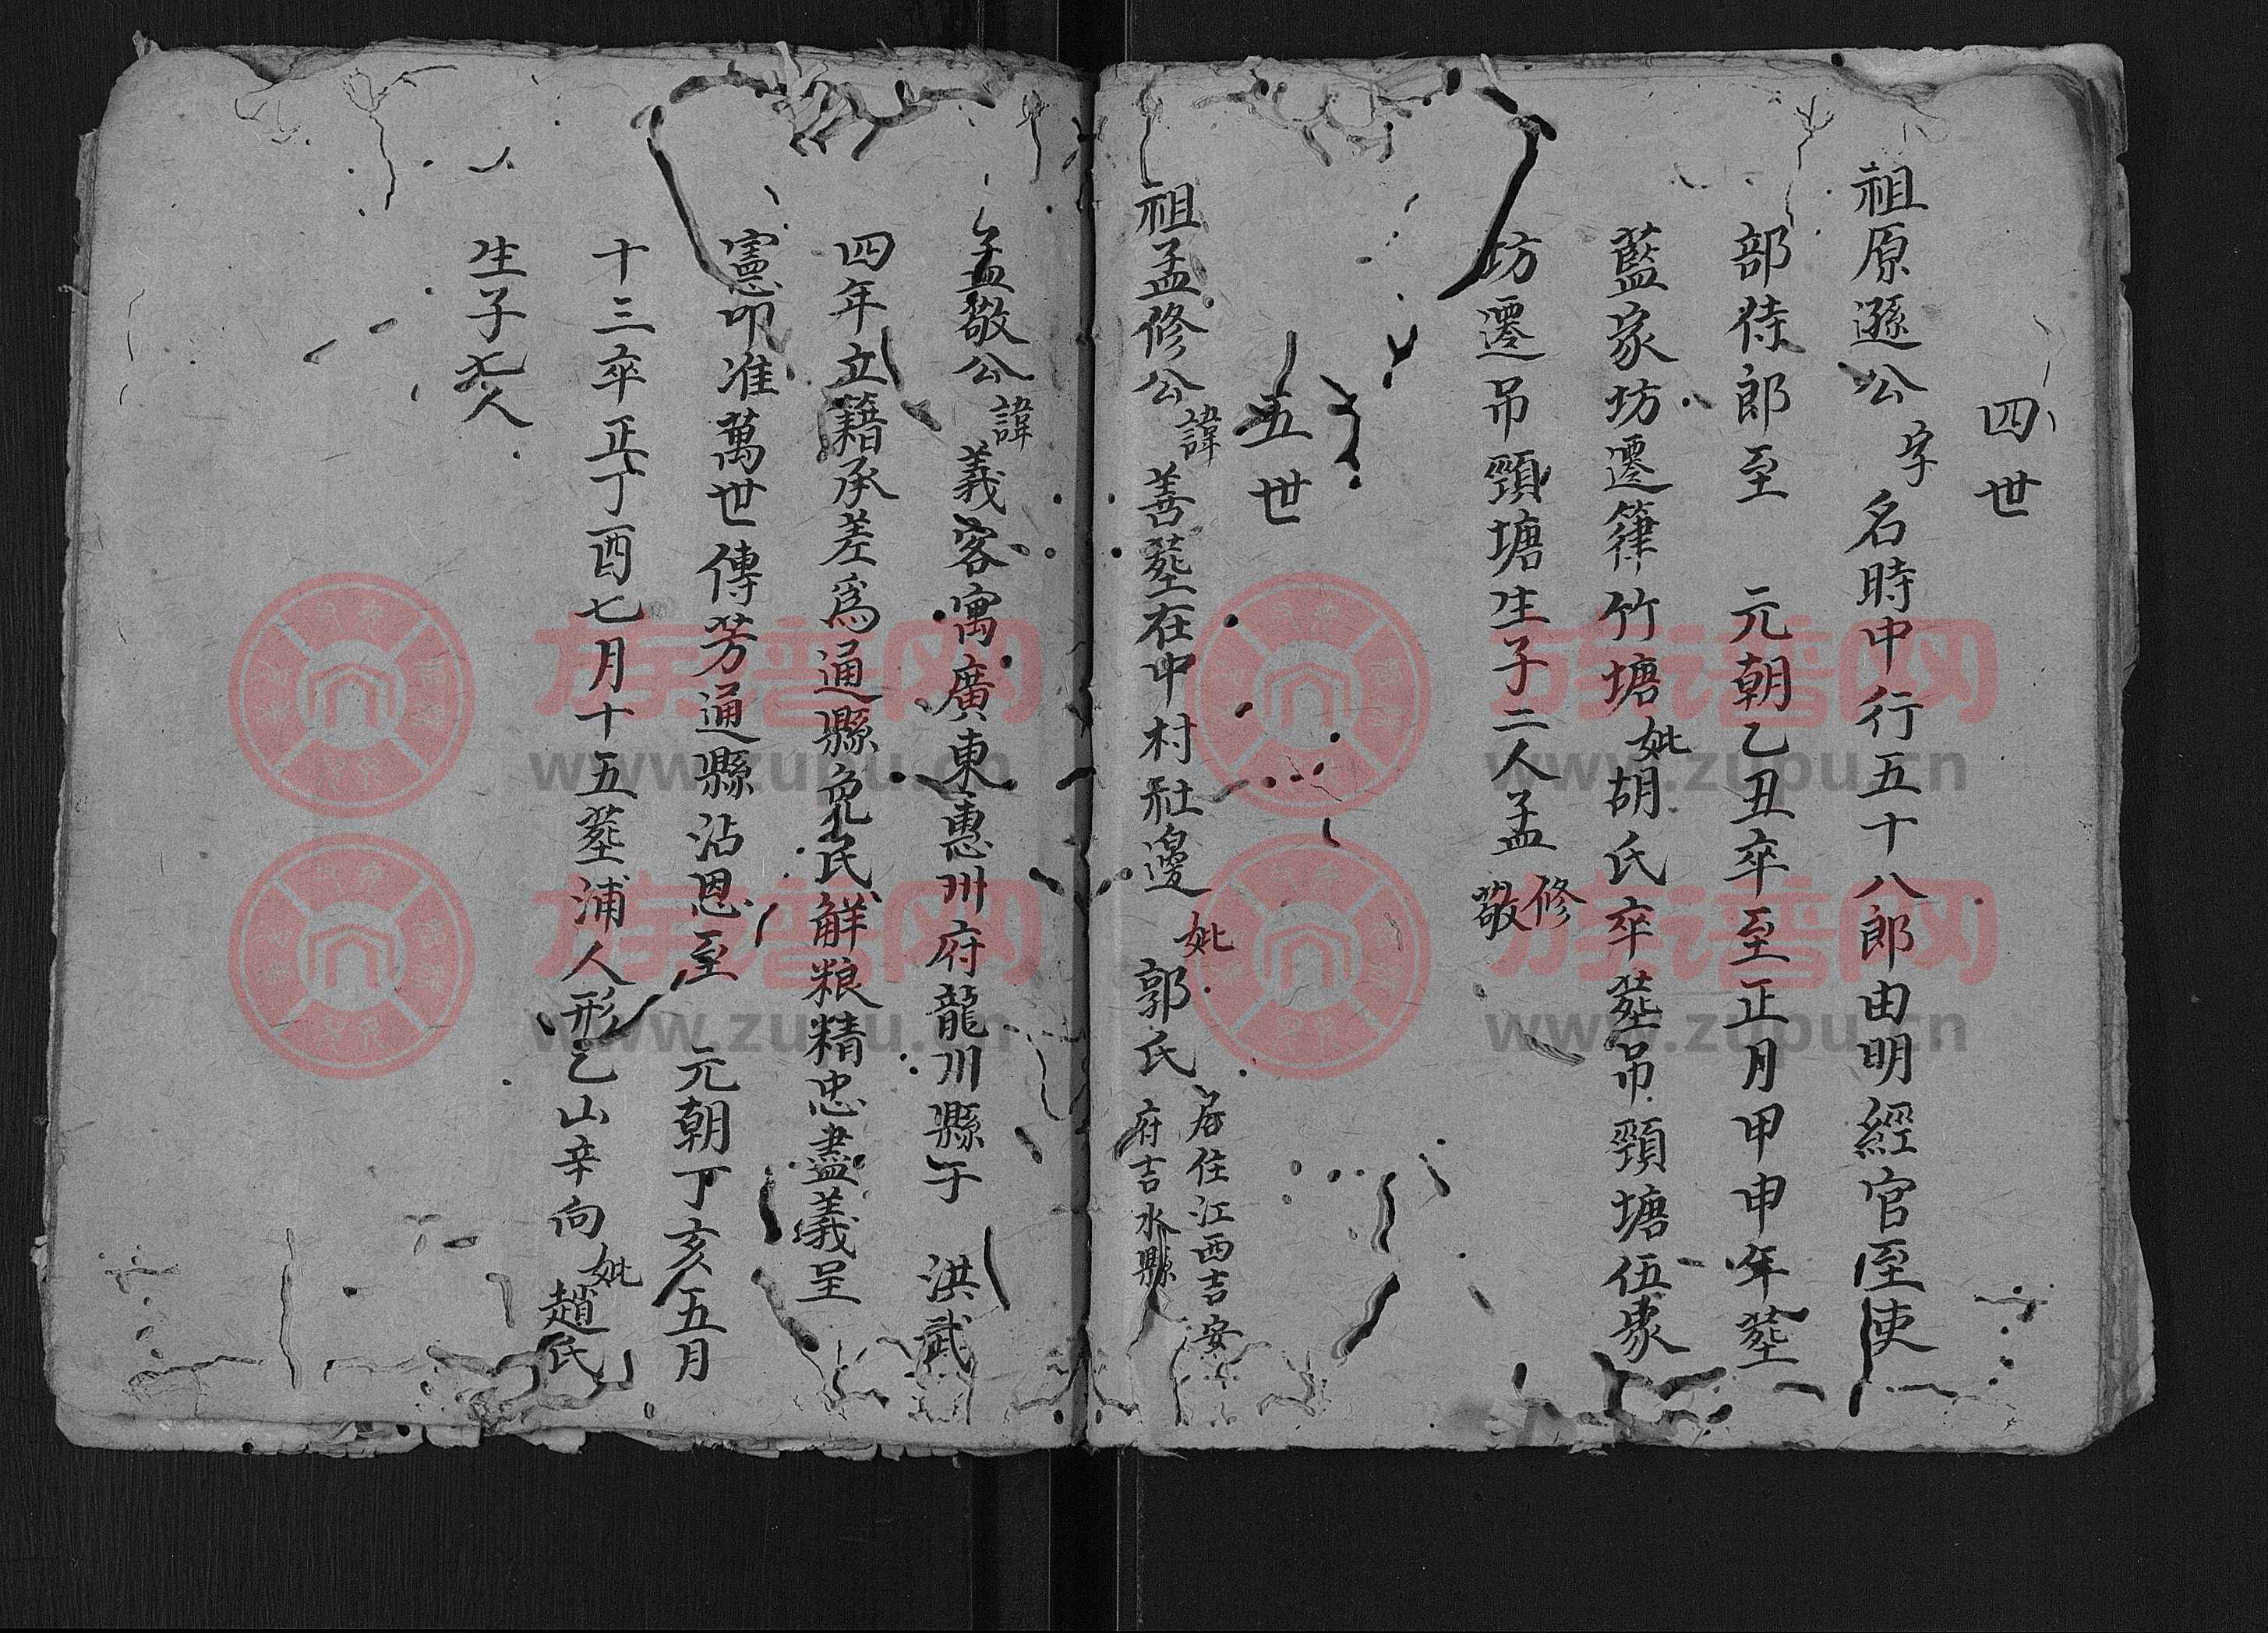 四世
祖原遜公字名時中行五十八郎由明經官至吏
部待郎至 元朝乙丑卒至正月甲申年塟
藍家坊遷箻竹塘妣胡氏卒塟吊頸塘伍家
坊遷吊頸塘生子二人孟修敬
五世
祖孟修公諱善塟在中村社邊妣郭氏居住江西吉安府吉水縣
孟敬公諱義客寓廣東惠州府龍川縣于 洪武
四年立籍承差爲通縣免民觧粮精忠盡義呈
憲叩准萬世傳芳通縣沾恩至 元朝丁亥五月
十三卒正丁酉七月十五塟浦人形乙山辛向妣趙氏
生子人
族谱网
www.zupu.cn
族谱网
www.zupu.cn
族谱网
www.zupu.cn
族谱网
www.zupu.cn